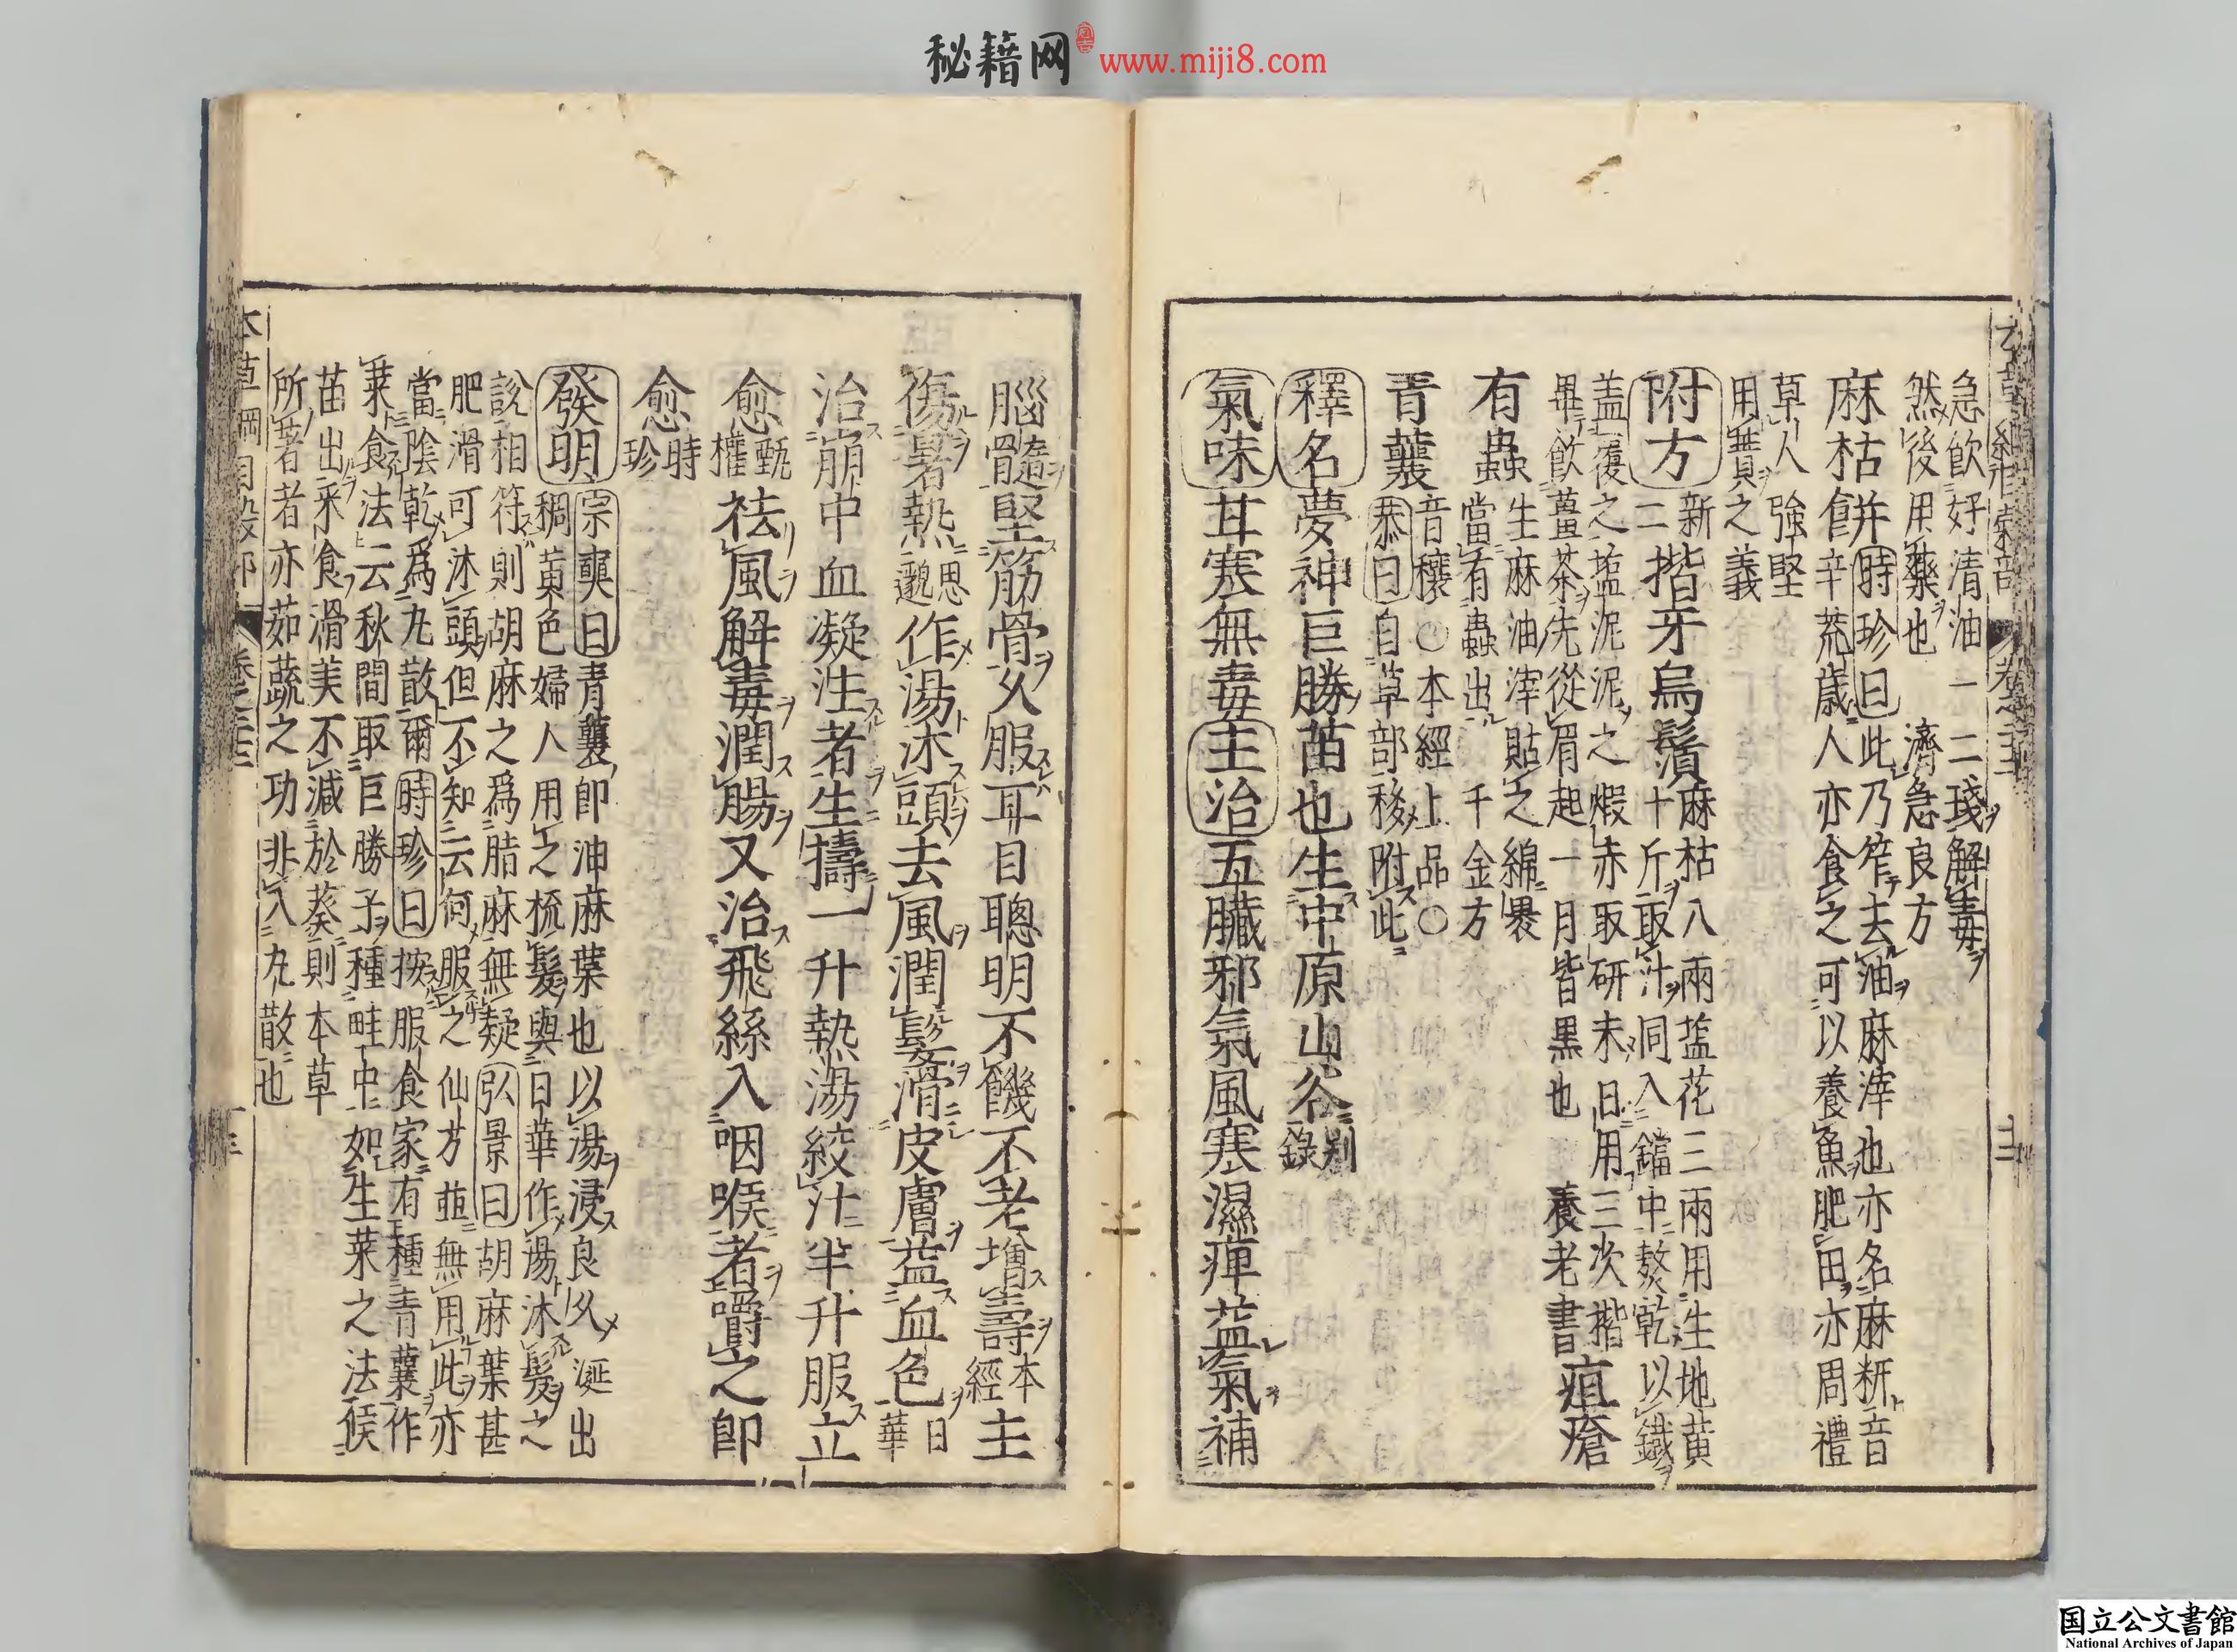 秘籍网 www.miji8.com
急飲好清油一二琖解毒
然後用藥也 濟急良方
麻枯餅 時珍曰此乃笮去油麻滓也亦名麻籸音
辛荒歲人亦食之可以養魚肥田亦周禮
草人強堅
用蕡之義
附方 新二 揩牙烏鬚 麻枯八兩鹽花三兩用生地黃
十斤取汁同入鐺中熬乾以鐵
蓋覆之鹽泥泥之煅赤取研末日用三次揩
畢飲薑茶先從眉起一月皆黑也 養老書 疽瘡
有蟲 生麻油滓貼之綿裹
當有蟲出 千金方
青蘘 音穰○本經上品○
恭曰自草部移附此
釋名 夢神巨勝苗也生中原山谷 别錄
氣味 甘寒無毒 主治 五臟邪氣風寒濕痺益氣補
腦髓堅筋骨久服耳目聰明不饑不老增壽 本經 主
傷暑熱 思邈 作湯沐頭去風潤髮滑皮膚益血色 日華
治崩中血凝注者生擣一升熱湯絞汁半升服立
愈 甄權 祛風解毒潤腸又治飛絲入咽喉者嚼之即
愈 時珍
發明 宗奭曰青蘘即油麻葉也以湯浸良久涎出
稠黃色婦人用之梳髮與日華作湯沐髮之
說相符則胡麻之爲脂麻無疑 弘景曰胡麻葉甚
肥滑可沐頭但不知云何服之仙方並無用此亦
當陰乾爲丸散爾 時珍曰按服食家有種青蘘作
菜食法云秋間取巨勝子種畦中如生菜之法候
苗出采食滑美不減於葵則本草
所著者亦茹蔬之功非入丸散也
本草綱目穀部 卷之二十二
国立公文書館
National Archives of Japan